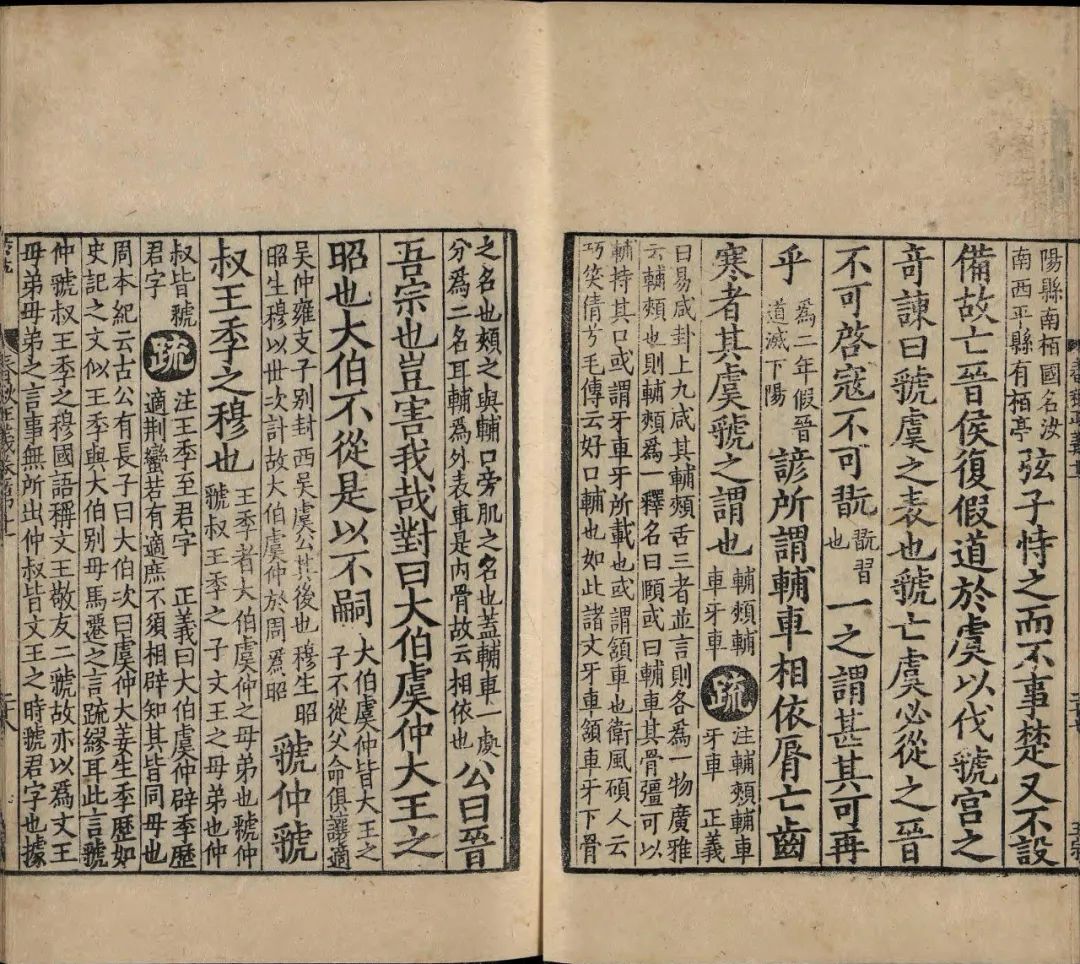 陽縣南栢國名汝
南西平縣有栢亭
弦子恃之而不事楚又不設
備故亡晉侯復假道於虞以伐虢宮之
竒諫曰虢虞之表也虢亡虞必從之晉
不可啓寇不可翫
翫習
也
一之謂甚其可再
乎
為二年假晉
道滅下陽
諺所謂輔車相依脣亡齒
寒者其虞虢之謂也
輔頰輔
車牙車
疏
注輔頰輔車
牙車 正義
曰易咸封上九咸其輔頰舌三者並言則各為一物廣雅
云輔頰也則輔頰爲一釋名曰頤或曰輔車其骨彊可以
輔持其口或謂牙車牙所載也或謂頷車也衛風碩人云
巧笑倩兮毛傳云好口輔也如此諸文牙車頷車牙下骨
之名也頰之與輔口旁肌之名也蓋輔車一處
分爲二名耳輔爲外表車是内骨故云相依也
公曰晉
吾宗也豈害我哉對曰大伯虞仲大王之
昭也大伯不從是以不嗣
大伯虞仲皆大王之
子不從父命俱讓適
吳仲雍支子别封西吳虞公其後也穆生昭
昭生穆以世次計故大伯虞仲於周爲昭
虢仲虢
叔王季之穆也
王季者大伯虞仲之母弟也虢仲
虢叔王季之子文王之母弟也仲
叔皆虢
君字
疏
注王季至君字 正義曰大伯虞仲辟季歷
適荆蠻若有適庶不須相辟知其皆同母也
周本紀云古公有長子曰大伯次曰虞仲大姜生季歷如
史記之文似王季與大伯别母馬遷之言疏繆耳此言虢
仲虢叔王季之穆國語稱文王敬友二虢故亦以爲文王
母弟母弟之言事無所出仲叔皆文王之時虢君字也據